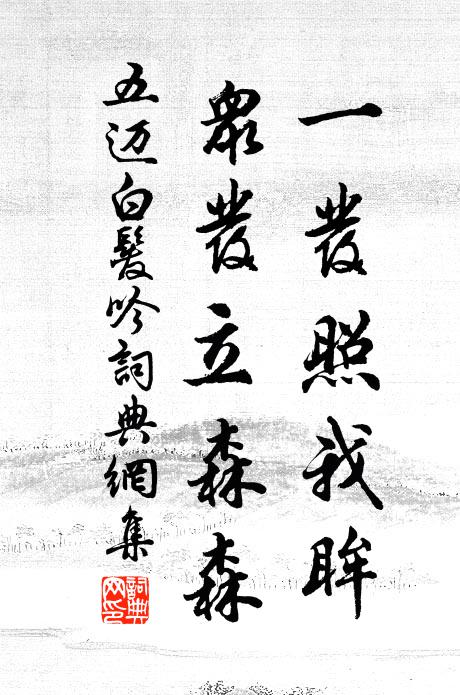 一發照我眸
眾發立森森
五迈白髮吟詞典網集
詞典
网印